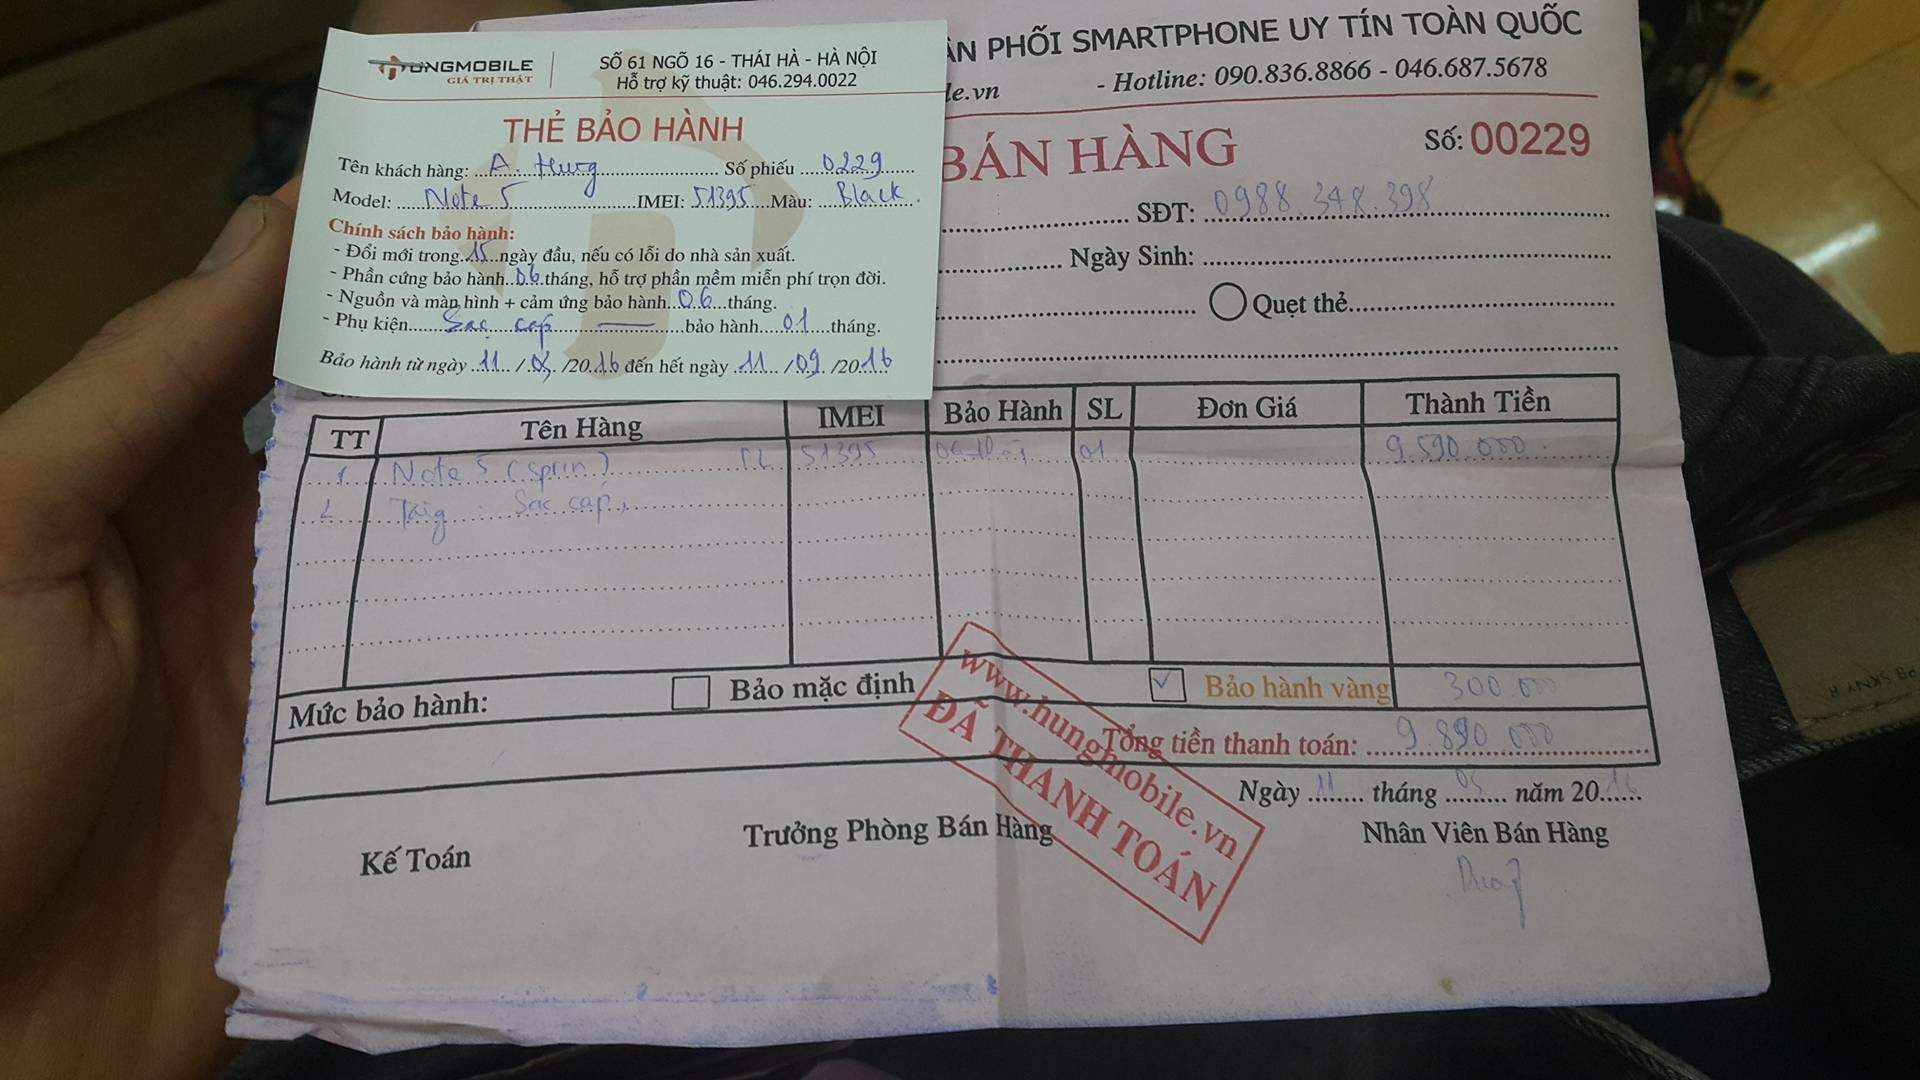 HÙNGMOBILE
GIÁ TRỊ THẬT
SỐ 61 NGÕ 16 - THÁI HÀ - HÀ NỘI
Hỗ trợ kỹ thuật: 046.294.0022
THẺ BẢO HÀNH
Tên khách hàng: A. Hưng Số phiếu 0229
Model: Note 5 IMEI: 51395 Màu: Black
Chính sách bảo hành:
- Đổi mới trong 15 ngày đầu, nếu có lỗi do nhà sản xuất.
- Phần cứng bảo hành 06 tháng, hỗ trợ phần mềm miễn phí trọn đời.
- Nguồn và màn hình + cảm ứng bảo hành 06 tháng.
- Phụ kiện Sạc cáp bảo hành 01 tháng.
Bảo hành từ ngày 11 / 03 /2016 đến hết ngày 11 / 09 /2016
ÂN PHỐI SMARTPHONE UY TÍN TOÀN QUỐC
le.vn - Hotline: 090.836.8866 - 046.687.5678
BÁN HÀNG
Số: 00229
SĐT: 0988.348.398
Ngày Sinh:
Quẹt thẻ
TT Tên Hàng IMEI Bảo Hành SL Đơn Giá Thành Tiền
1 Note 5 (sprin) 51395 01 9.590.000
2 Sạc cáp
Mức bảo hành: Bảo mặc định Bảo hành vàng 300.000
Tổng tiền thanh toán: 9.890.000
www.hungmobile.vn
ĐÃ THANH TOÁN
Ngày 11 tháng 03 năm 2016
Kế Toán Trưởng Phòng Bán Hàng Nhân Viên Bán Hàng